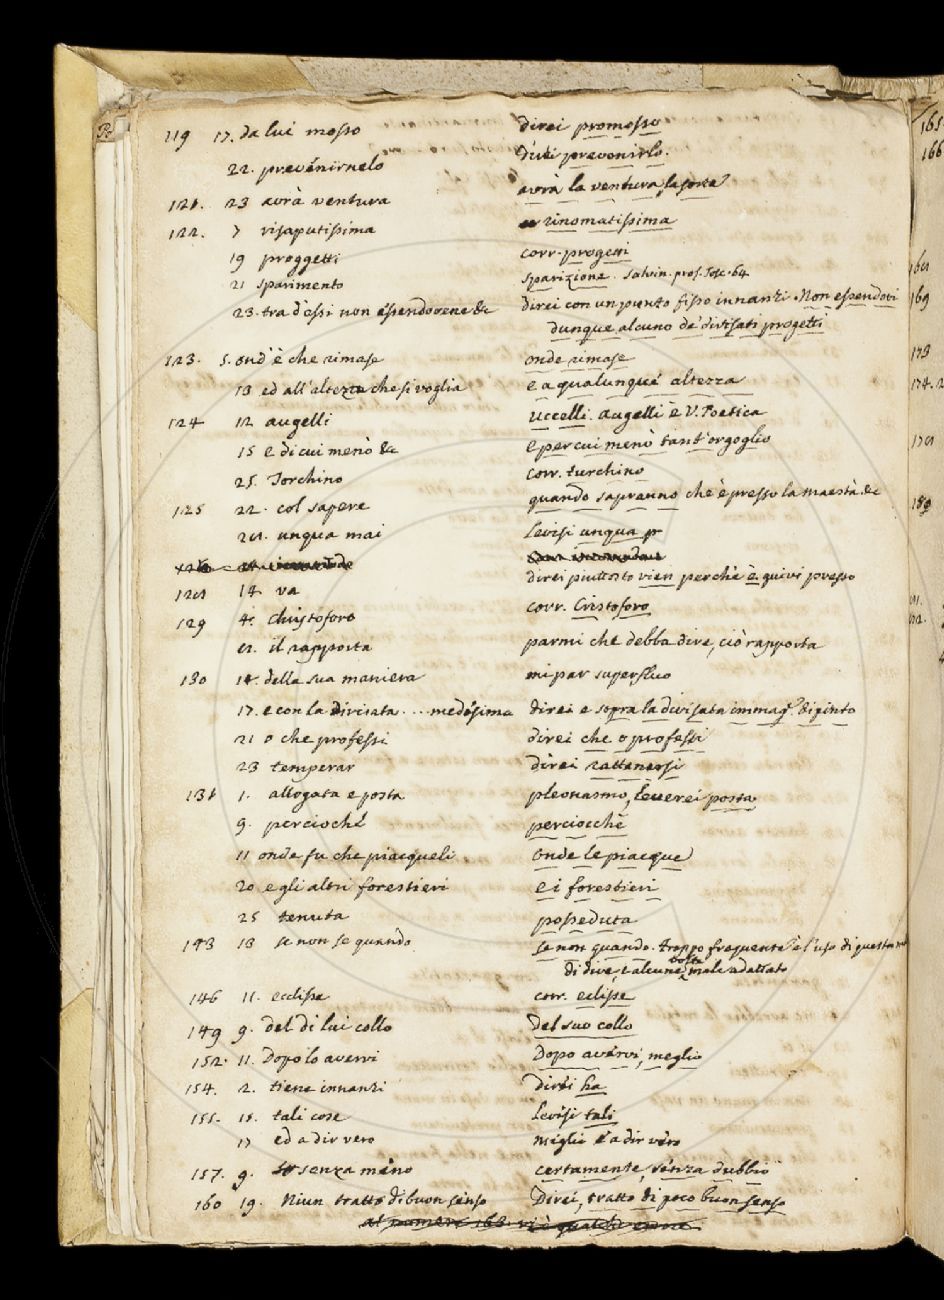 119 17. da lui mosso direi promosso
22. prevénirnelo direi prevenirlo.
121. 23 avrà ventura avrà la ventura, la sorte
122. 7 risaputissima rinomatissima
19 proggetti corr. progetti
21 sparimento sparizione. Salvin. pros. Tosc. 64
23. tra d'essi non essendovene &c direi con un punto fisso innanzi. Non essendovi
dunque alcuno de' divisati progetti
123. 5. ond' è che rimase onde rimase
13 ed all' altezza che si voglia e a qualunque altezza
124 12 augelli uccelli. augelli è V. Poetica
15 e di cui menò &c e per cui menò tant' orgoglio
25. Torchino corr. turchino
125 22. col sapere quando sapranno che è presso la maestà &c
unqua mai levisi unqua
14. va direi piuttosto vien perchè è quivi presso
129 4. Christoforo corr. Cristoforo
il rapporta parmi che debba dire, ciò rapporta
130 14. della sua maniera mi par superfluo
17. e con la divisata ... medesima direi e sopra la divisata immag.e dipinto
21 o che professi direi che o professi
23 temperar direi rattenersi
131 1. allogata e posta pleonasmo, leverei posta
9. perciochè perciocchè
11 onde fu che piacqueli onde le piacque
20 e gli altri forestieri e i forestieri
25 tenuta posseduta
143 13 se non se quando se non quando. troppo frequente è l'uso di questo
di dire, talune volte male adattato
146 11. ecclisse corr. eclisse
149 9. del di lui collo del suo collo
152. 11. Dopo lo avervi Dopo avervi, meglio
154. 2. tiene innanzi direi ha
155. tali cose levisi tali
17 ed a dir vero meglio e a dir vero
157. 9. senza meno certamente, senza dubbio
160 19. Niun tratto di buon senso Direi, tratto di poco buon senso
al numero 163 vi è qualche errore